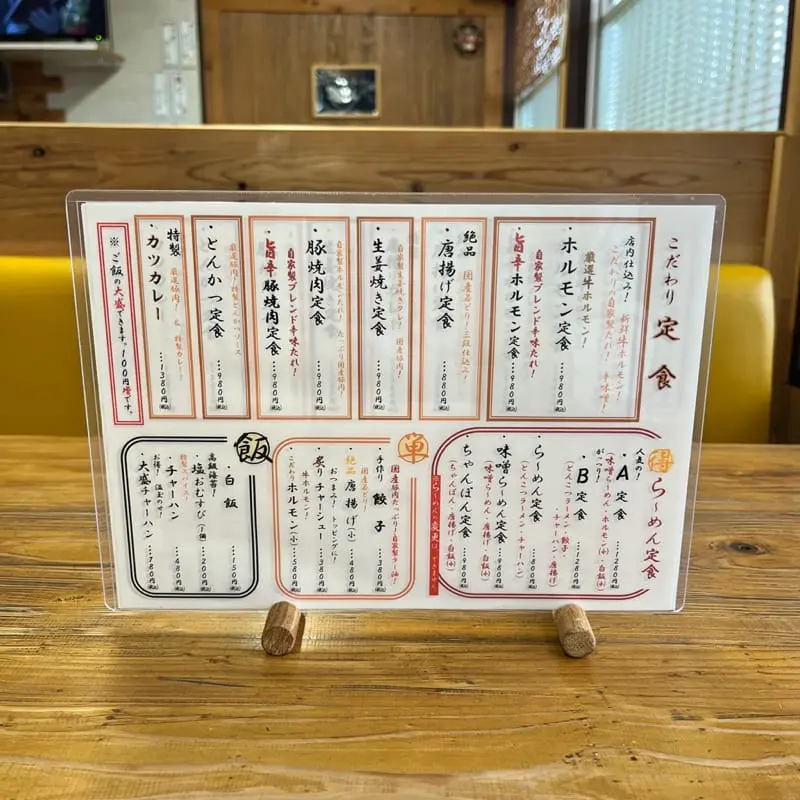 こだわり 定食
店内仕込み! 新鮮牛ホルモン!
こだわりの自家製だれ! 辛味噌!
厳選牛ホルモン!
・ホルモン定食 …980円(税込)
自家製ブレンド辛味だれ!
・旨辛ホルモン定食 …980円(税込)
絶品 国産若どり!二段仕込み!
・唐揚げ定食 …880円(税込)
自家製生姜焼きタレ! 国産豚肉!
・生姜焼き定食 …980円(税込)
自家製ホルモンだれ! たっぷり国産豚肉!
・豚焼肉定食 …980円(税込)
自家製ブレンド辛味だれ!
・旨辛豚焼肉定食 …980円(税込)
厳選豚肉!特製とんかつソース
・とんかつ定食 …980円(税込)
特製 厳選豚肉! & 特製カレー!
・カツカレー …1380円(税込)
※ご飯の大盛できます。100円増です。
人気の! 得 らーめん定食
・A定食 …1280円(税込)
(味噌らーめん・ホルモン(小)・白飯(小)
がっつり!
・B定食 …1280円(税込)
(とんこつラーメン・餃子・チャーハン・唐揚げ)
・らーめん定食 …800円(税込)
(とんこつラーメン・チャーハン)
・味噌らーめん定食 …980円(税込)
(味噌らーめん・唐揚げ・白飯(小)
・ちゃんぽん定食 …980円(税込)
(ちゃんぽん・唐揚げ・白飯(小)
※らーめんの変更は、できません。
単
国産豚肉たっぷり!自家製ラー油!
・手作り 餃子 …380円(税込)
国産若どり!
・絶品 唐揚げ(小) …480円(税込)
おつまみ!トッピングに!
・炙りチャーシュー …380円(税込)
牛ホルモン!
・こだわりホルモン(小) …580円(税込)
飯
・白飯 …150円(税込)
高級海苔!
・塩おむすび(1個) …200円(税込)
特製スパイス!
・チャーハン …480円(税込)
お得! 温玉のせ!
・大盛チャーハン …780円(税込)